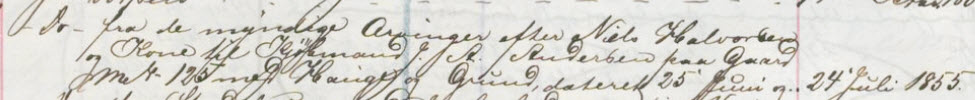 - Do - fra de myndige Arvinger efter Niels Halvorsen
og Kone til Kjøbmand J. A. Andersen paa Gaard
Mt. 125 med Hauge og Grund, dateret 25 Juni og .. 24 Juli 1855.